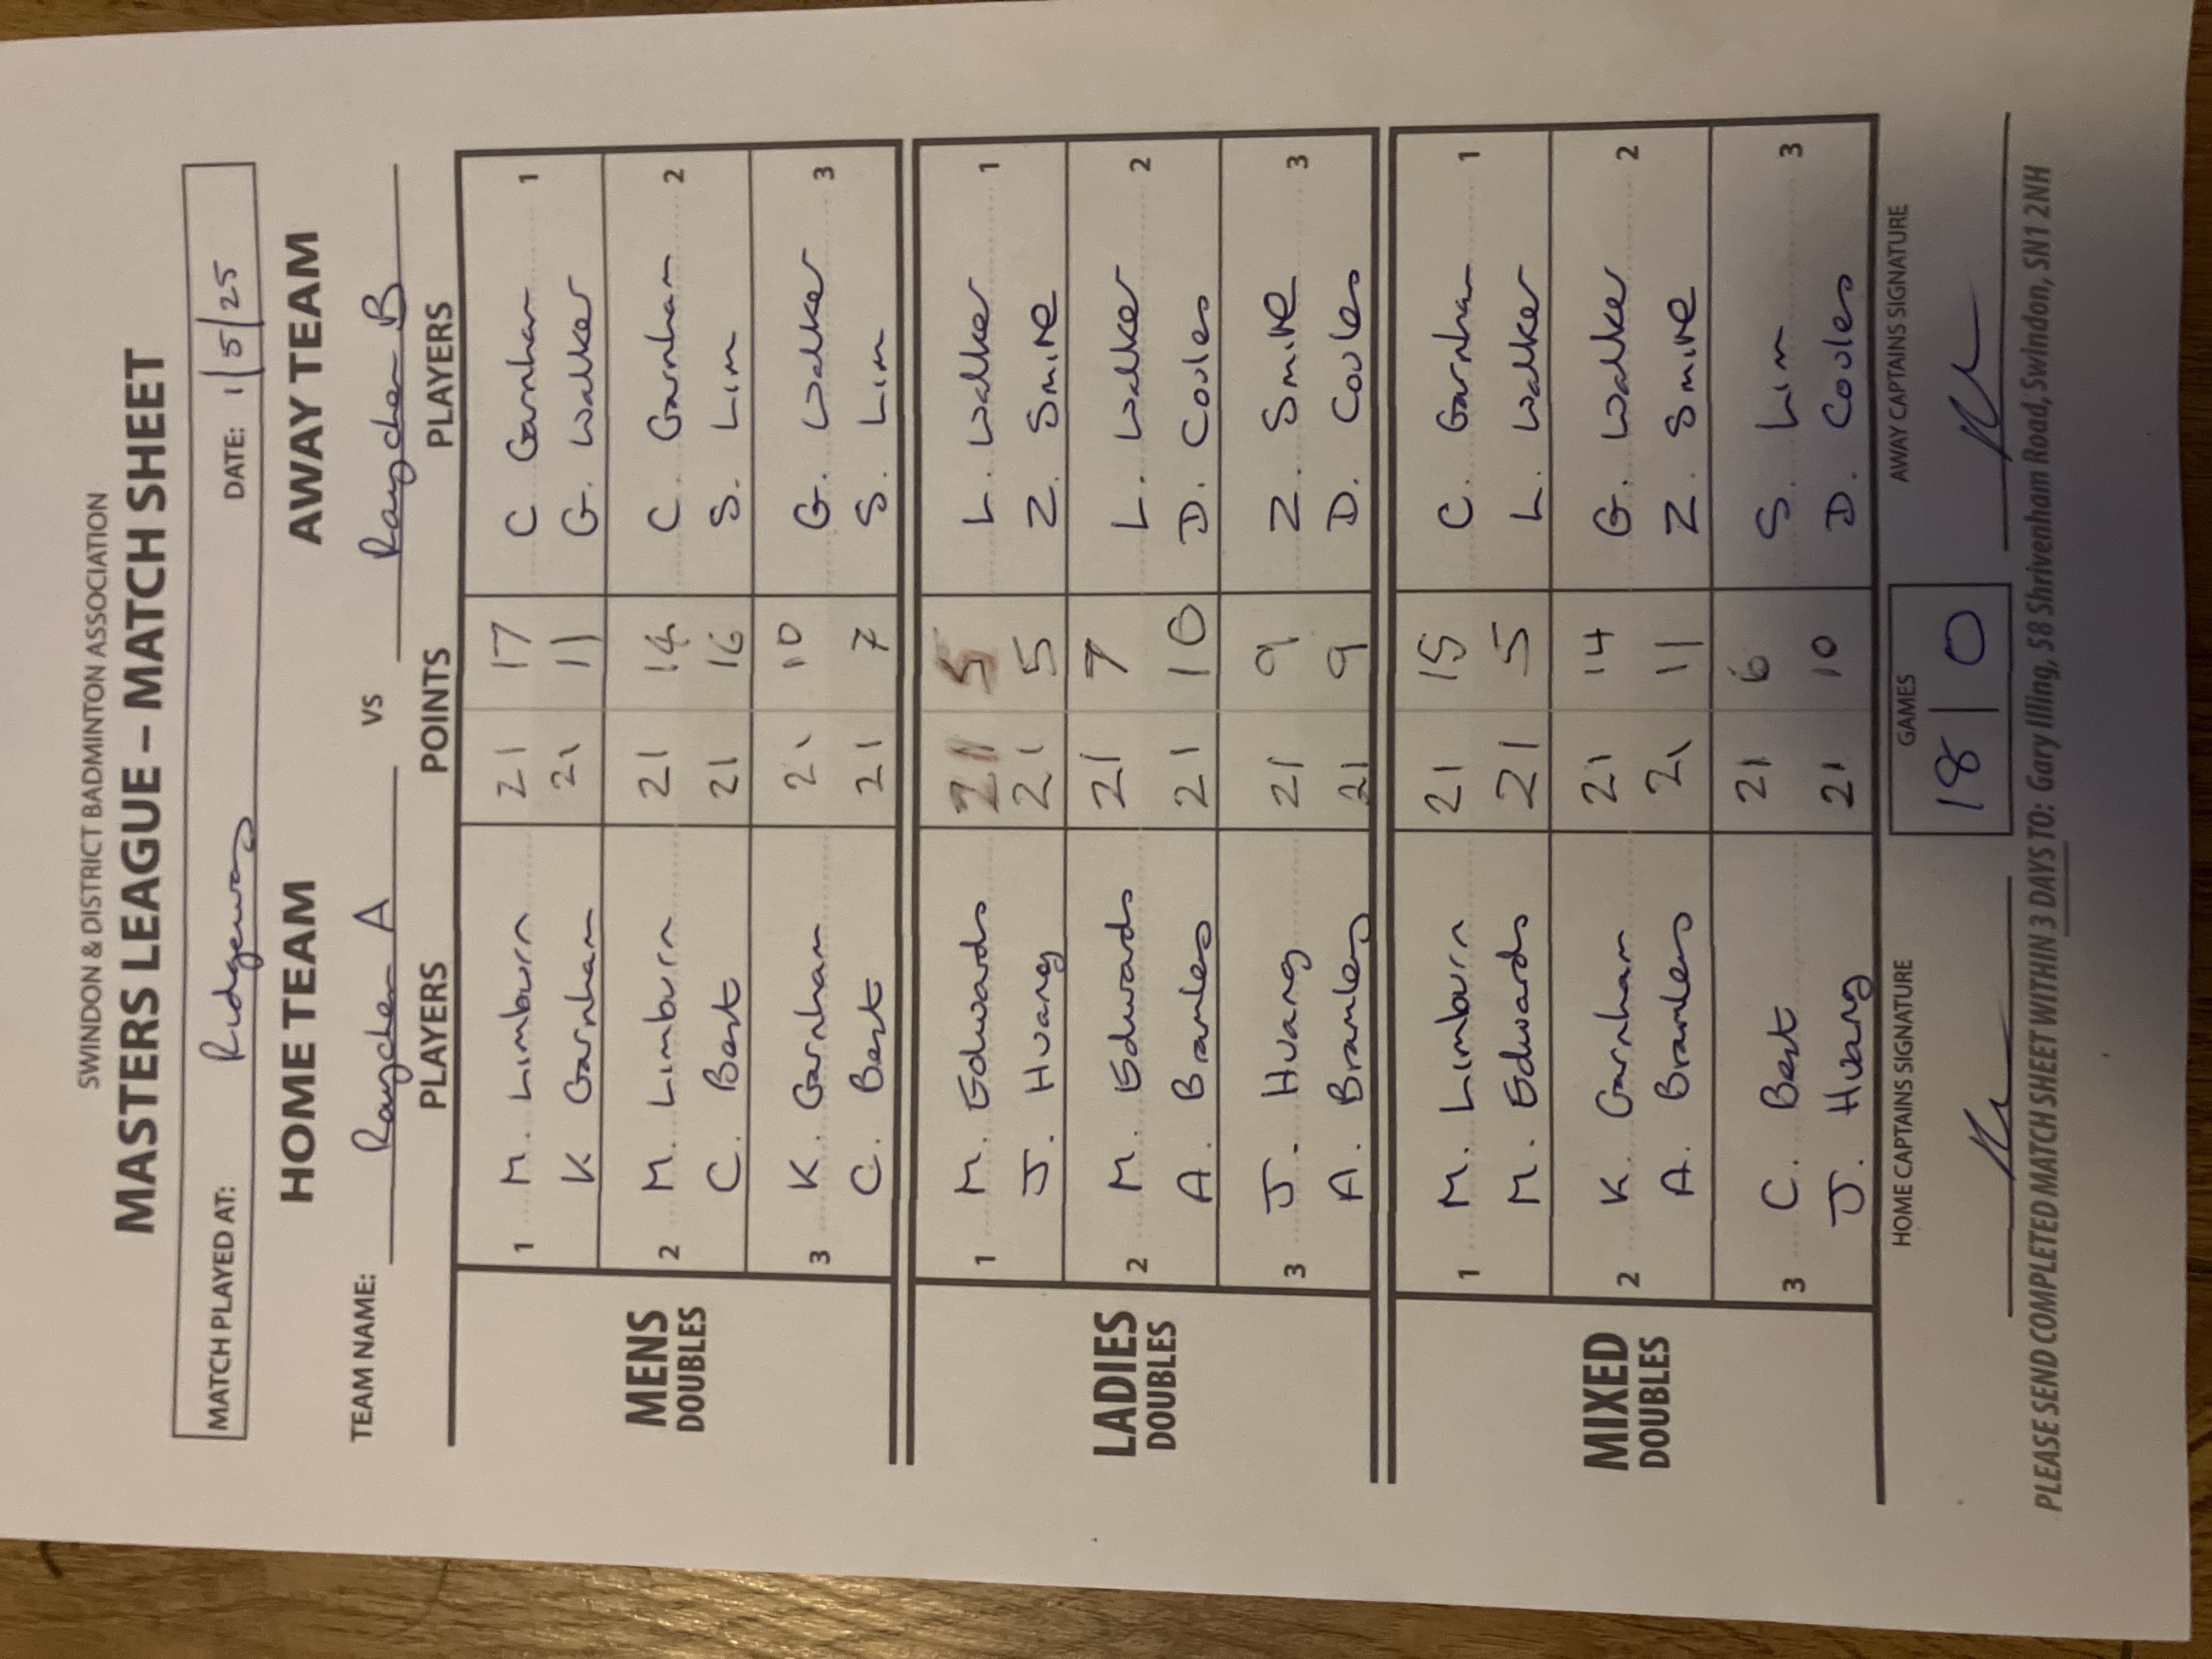 SWINDON & DISTRICT BADMINTON ASSOCIATION
MASTERS LEAGUE – MATCH SHEET
MATCH PLAYED AT: Ridgeway DATE: 1/5/25
HOME TEAM AWAY TEAM
TEAM NAME: A VS B
PLAYERS POINTS PLAYERS
MENS DOUBLES
1 M. Limburn 21 17 C. Garnham 1
K Garnham 21 11 G. Walker
2 M. Limburn 21 14 C. Garnham 2
C. Best 21 16 S. Lim
3 K. Garnham 21 10 G. Walker 3
C. Best 21 7 S. Lim
LADIES DOUBLES
1 M. Edwards 21 5 L. Walker 1
J. Huang 21 5 Z. Smire
2 M. Edwards 21 7 L. Walker 2
A. Bramley 21 10 D. Coules
3 J. Huang 21 9 Z. Smire 3
A. Bramley 21 9 D. Coules
MIXED DOUBLES
1 M. Limburn 21 15 C. Garnham 1
M. Edwards 21 5 L. Walker
2 K. Garnham 21 14 G. Walker 2
A. Bramley 21 11 Z. Smire
3 C. Best 21 6 S. Lim 3
J. Huang 21 10 D. Coules
HOME CAPTAINS SIGNATURE GAMES AWAY CAPTAINS SIGNATURE
18 | 0
PLEASE SEND COMPLETED MATCH SHEET WITHIN 3 DAYS TO: Gary Illing, 58 Shrivenham Road, Swindon, SN1 2NH